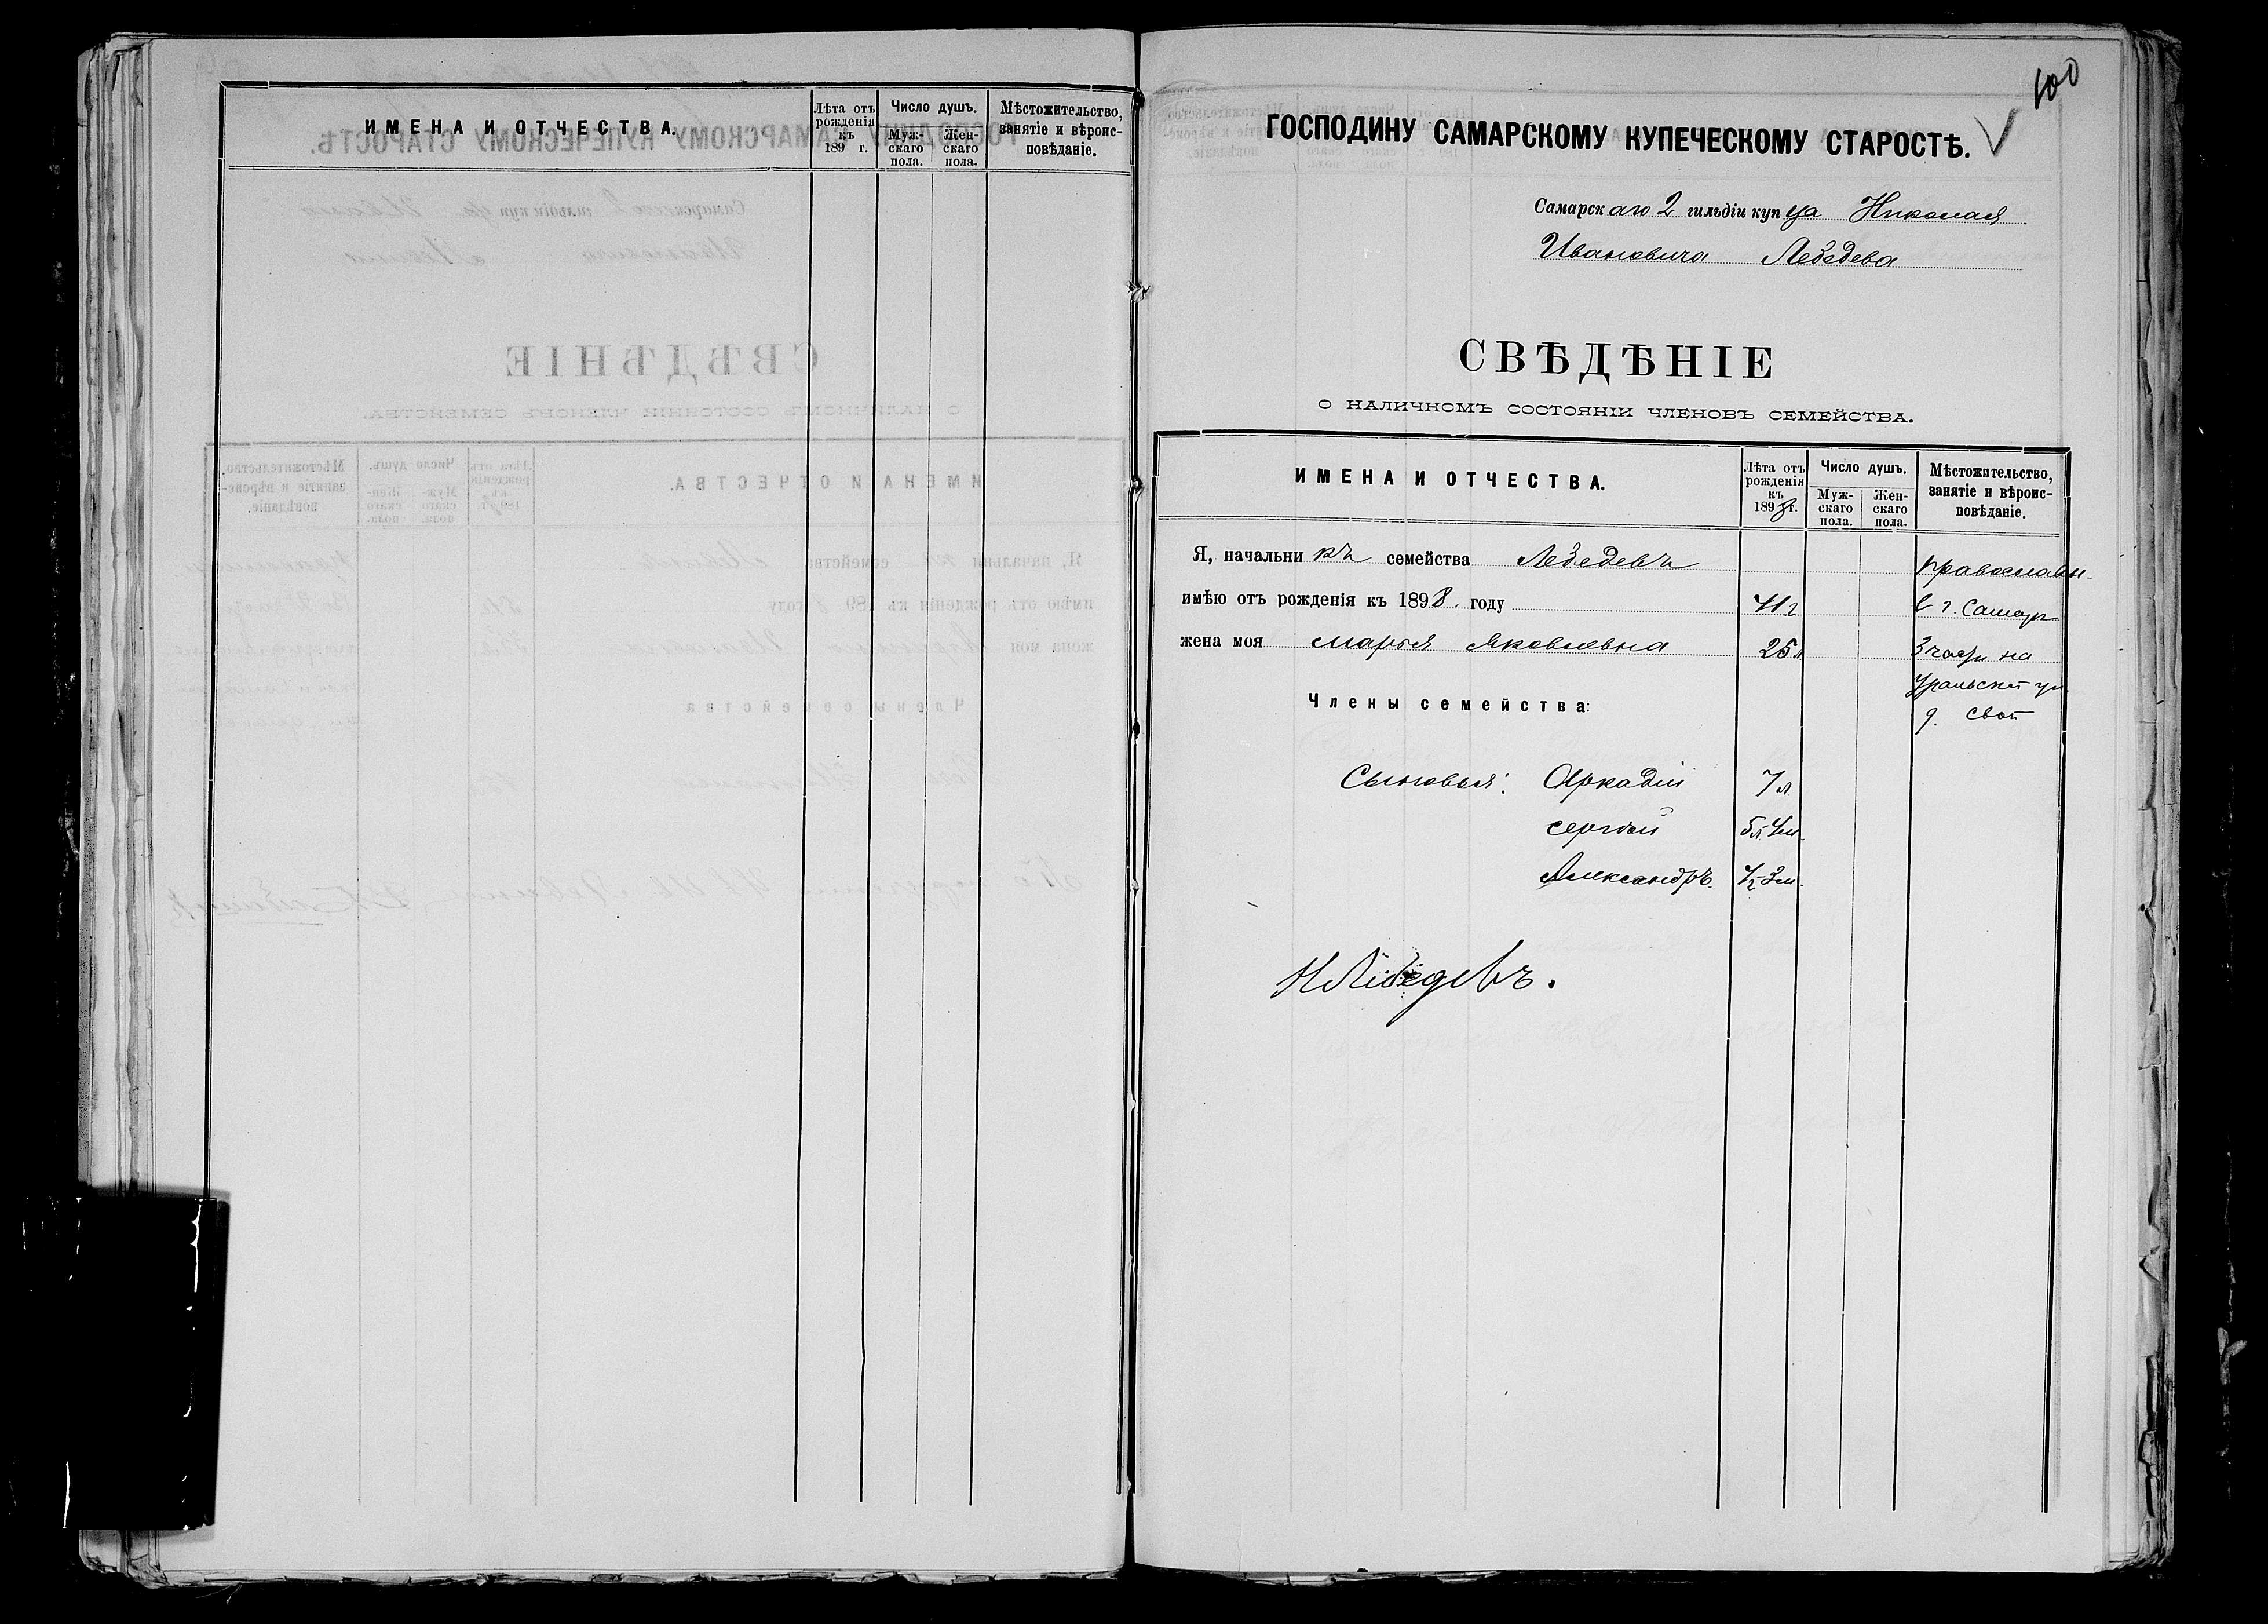 ИМЕНА И ОТЧЕСТВА.
Лѣта отъ рожденія къ 189 г.
Число душъ.
Муж-скаго пола.
Жен-скаго пола.
Мѣстожительство, занятіе и вѣроис-повѣданіе.
100
ГОСПОДИНУ САМАРСКОМУ КУПЕЧЕСКОМУ СТАРОСТѢ.
Самарскаго 2 гильдіи купца Николая
Ивановича Лебедева
СВѢДѢНІЕ
О НАЛИЧНОМЪ СОСТОЯНІИ ЧЛЕНОВЪ СЕМЕЙСТВА.
ИМЕНА И ОТЧЕСТВА.
Лѣта отъ рожденія къ 1898 г.
Число душъ.
Муж-скаго пола.
Жен-скаго пола.
Мѣстожительство, занятіе и вѣроис-повѣданіе.
Я, начальникъ семейства Лебедевъ православн
имѣю отъ рожденія къ 1898. году 41 г в г. Самар
жена моя Марья Яковлевна 25 л 3 части на
Уральской ул
Члены семейства:
д. свой
Сыновья: Аркадій 7 л
Сергѣй 5 л 4 м
Александръ. 3 м.
Н Лебедевъ.